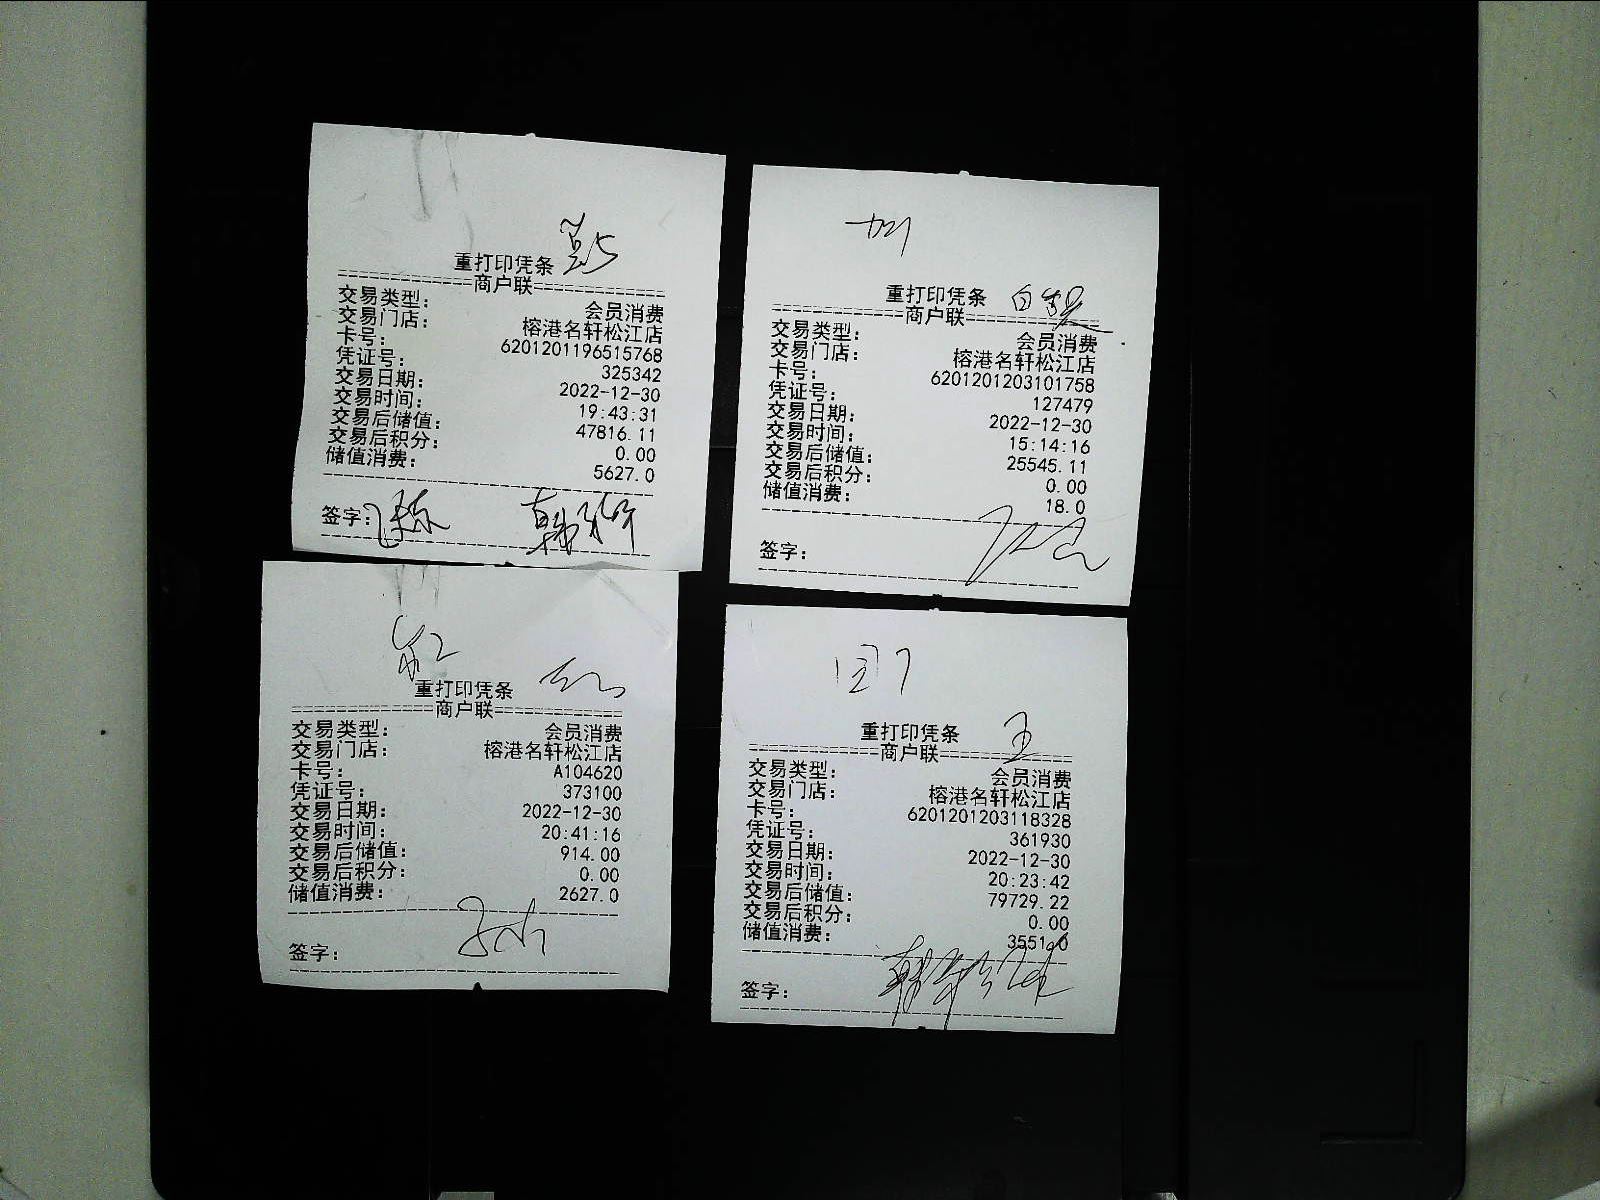 重打印凭条
============商户联============
交易类型： 会员消费
交易门店： 榕港名轩松江店
卡号： 6201201196515768
凭证号： 325342
交易日期： 2022-12-30
交易时间： 19:43:31
交易后储值： 47816.11
交易后积分： 0.00
储值消费： 5627.0
签字：
重打印凭条
============商户联============
交易类型： 会员消费
交易门店： 榕港名轩松江店
卡号： 6201201203101758
凭证号： 127479
交易日期： 2022-12-30
交易时间： 15:14:16
交易后储值： 25545.11
交易后积分： 0.00
储值消费： 18.0
签字：
重打印凭条
============商户联============
交易类型： 会员消费
交易门店： 榕港名轩松江店
卡号： A104620
凭证号： 373100
交易日期： 2022-12-30
交易时间： 20:41:16
交易后储值： 914.00
交易后积分： 0.00
储值消费： 2627.0
签字：
王
重打印凭条
============商户联============
交易类型： 会员消费
交易门店： 榕港名轩松江店
卡号： 6201201203118328
凭证号： 361930
交易日期： 2022-12-30
交易时间： 20:23:42
交易后储值： 79729.22
交易后积分： 0.00
储值消费： 3551.0
签字：